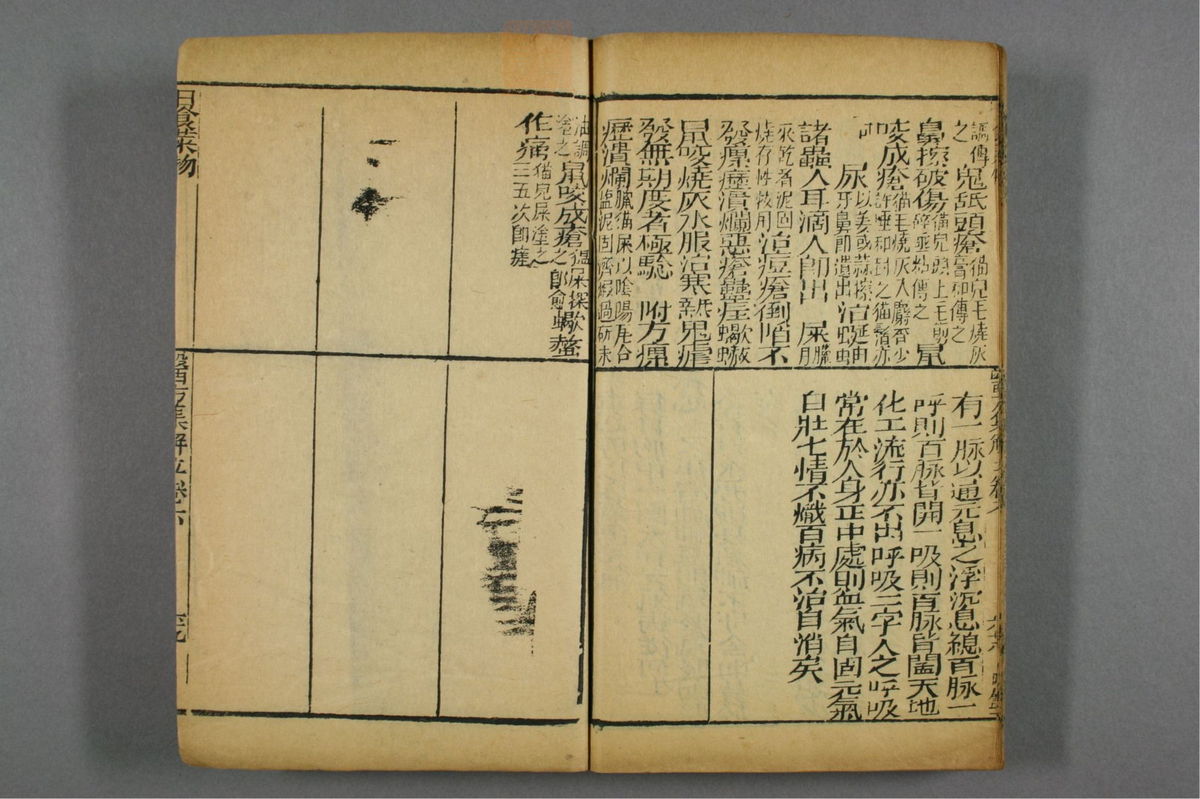 之 鬼舐頭瘡 猫兒毛燒灰膏和傅之 鼠
鼻擦破傷 猫兒頭上毛剪碎唾粘傅之 鼠
咬成瘡 猫毛燒灰入麝香少許唾和封之猫鬚亦
可 尿 以姜或蒜擦牙鼻即遺出 治蜒蚰
諸蟲入耳滴入即出 屎 臘月
采乾者泥固燒存性收用 治痘瘡倒陷不
發瘰癧潰爛惡瘡蠱疰蝎螫
鼠咬燒灰水服治寒熱鬼瘧
發無期度者極驗 附方瘰
癧潰爛 臘猫屎以陰陽瓦合鹽泥固濟煅過研末
油調塗之 鼠咬成瘡 猫屎揉之即愈 蝎螫
作痛 猫兒屎塗之三五次即瘥
有一脉以通元息之浮沉息總百脉一
呼則百脉皆開一吸則百脉皆闔天地
化工流行亦不出呼吸二字人之呼吸
常在於人身正中處則血氣自固元氣
自壯七情不熾百病不治自消矣
日食菜物
醫方集解 卷六